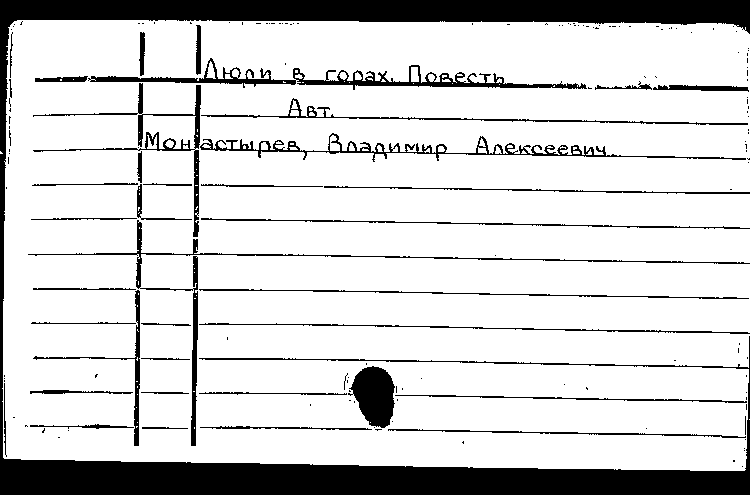 Люди в горах. Повесть
Авт.
Монастырев, Владимир Алексеевич.